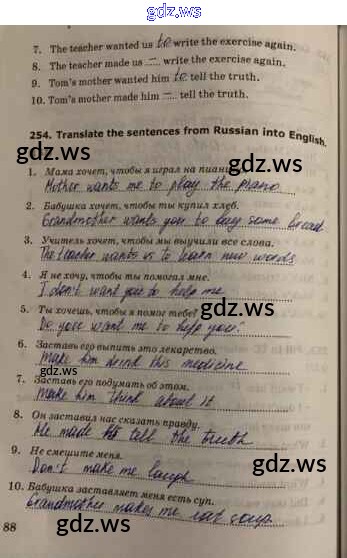 gdz.ws
7. The teacher wanted us to write the exercise again.
8. The teacher made us — write the exercise again.
9. Tom's mother wanted him to tell the truth.
10. Tom's mother made him — tell the truth.
254. Translate the sentences from Russian into English.
gdz.ws gdz.ws
1. Мама хочет, чтобы я играл на пианино.
Mother wants me to play the piano
2. Бабушка хочет, чтобы ты купил хлеб.
Grandmother wants you to buy some bread
gdz.ws gdz.ws
3. Учитель хочет, чтобы мы выучили все слова.
The teacher wants us to learn new words
4. Я не хочу, чтобы ты помогал мне.
I don't want you to help me
gdz.ws gdz.ws
5. Ты хочешь, чтобы я помог тебе?
Do you want me to help you?
6. Заставь его выпить это лекарство.
Make him drink this medicine
gdz.ws gdz.ws
7. Заставь его подумать об этом.
Make him think about it
8. Он заставил нас сказать правду.
He made tell the truth
gdz.ws gdz.ws
9. Не смешите меня.
Don't make me laugh
10. Бабушка заставляет меня есть суп.
Grandmother makes me eat soup
gdz.ws gdz.ws
88
gdz.ws